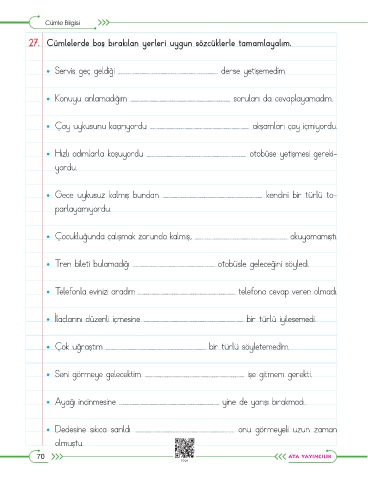 Cümle Bilgisi
27. Cümlelerde boş bırakılan yerleri uygun sözcüklerle tamamlayalım.
• Servis geç geldiği ........ derse yetişemedim.
• Konuyu anlamadığım ........ soruları da cevaplayamadım.
• Çay uykusunu kaçırıyordu ........ akşamları çay içmiyordu.
• Hızlı adımlarla koşuyordu ........ otobüse yetişmesi gereki-
yordu.
• Gece uykusuz kalmış bundan ........ kendini bir türlü to-
parlayamıyordu.
• Çocukluğunda çalışmak zorunda kalmış, ........ okuyamamıştı.
• Tren bileti bulamadığı ........ otobüsle geleceğini söyledi.
• Telefonla evinizi aradım ........ telefona cevap veren olmadı.
• İlaçlarını düzenli içmesine ........ bir türlü iyileşemedi.
• Çok uğraştım ........ bir türlü söyletemedim.
• Seni görmeye gelecektim ........ işe gitmem gerekti.
• Ayağı incinmesine ........ yine de yarışı bırakmadı.
• Dedesine sıkıca sarıldı ........ onu görmeyeli uzun zaman
olmuştu.
70
ATA YAYINCILIK